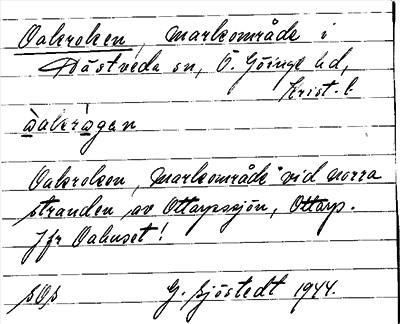 Oakroken, markområde i
Hästveda sn, Ö. Göinge hd,
Krist. l.
òakrågan
Oakroken, markområde vid norra
stranden av Ottarpssjön, Ottarp.
Jfr Oahuset!
sOs G. Sjöstedt 1944.